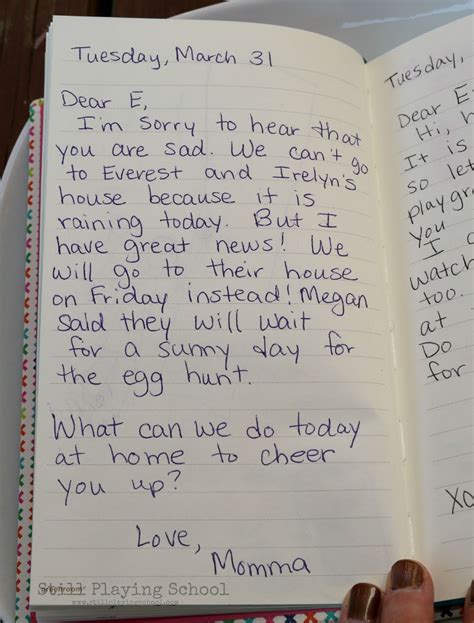 Tuesday, March 31
Dear E,
I'm sorry to hear that
you are sad. We can't go
to Everest and Irelyn's
house because it is
raining today. But I
have great news! We
will go to their house
on Friday instead! Megan
said they will wait
for a sunny day for
the egg hunt.
What can we do today
at home to cheer
you up?
Love,
Momma
Still Playing School
www.stillplayingschool.com
Tuesday,
Dear E
Hi, h
It is
so let
playgr
you
I
watch
too.
at
Do
for
Xo